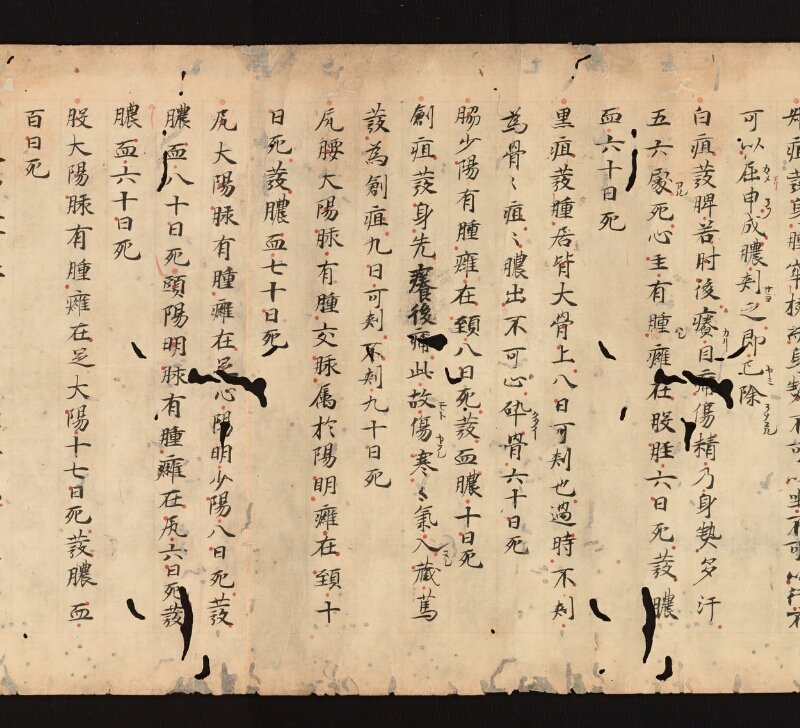 疽發身腫牢核
可以屈申成膿刾之即已除
白疽發脾若肘後癢目痛傷精乃身𤍠多汗
五六處死心主有腫癰在股脛六日死發膿
血六十日死
黒疽發腫居背大骨上八日可刾也過時不刾
為骨〻疽〻膿出不可心砕骨六十日死
脇少陽有腫癰在頚八日死發血膿十日死
創疽發身先癢後痛此故傷寒〻氣入藏篤
發為創疽九日可刾不刾九十日死
尻腰大陽脉有腫交脉属於陽明癰在頚十
日死發膿血七十日死
尻大陽脉有腫癰在足心陽明少陽八日死發
膿血八十日死頭陽明脉有腫癰在尻六日死發
膿血六十日死
股大陽脉有腫癰在足大陽十七日死發膿血
百日死